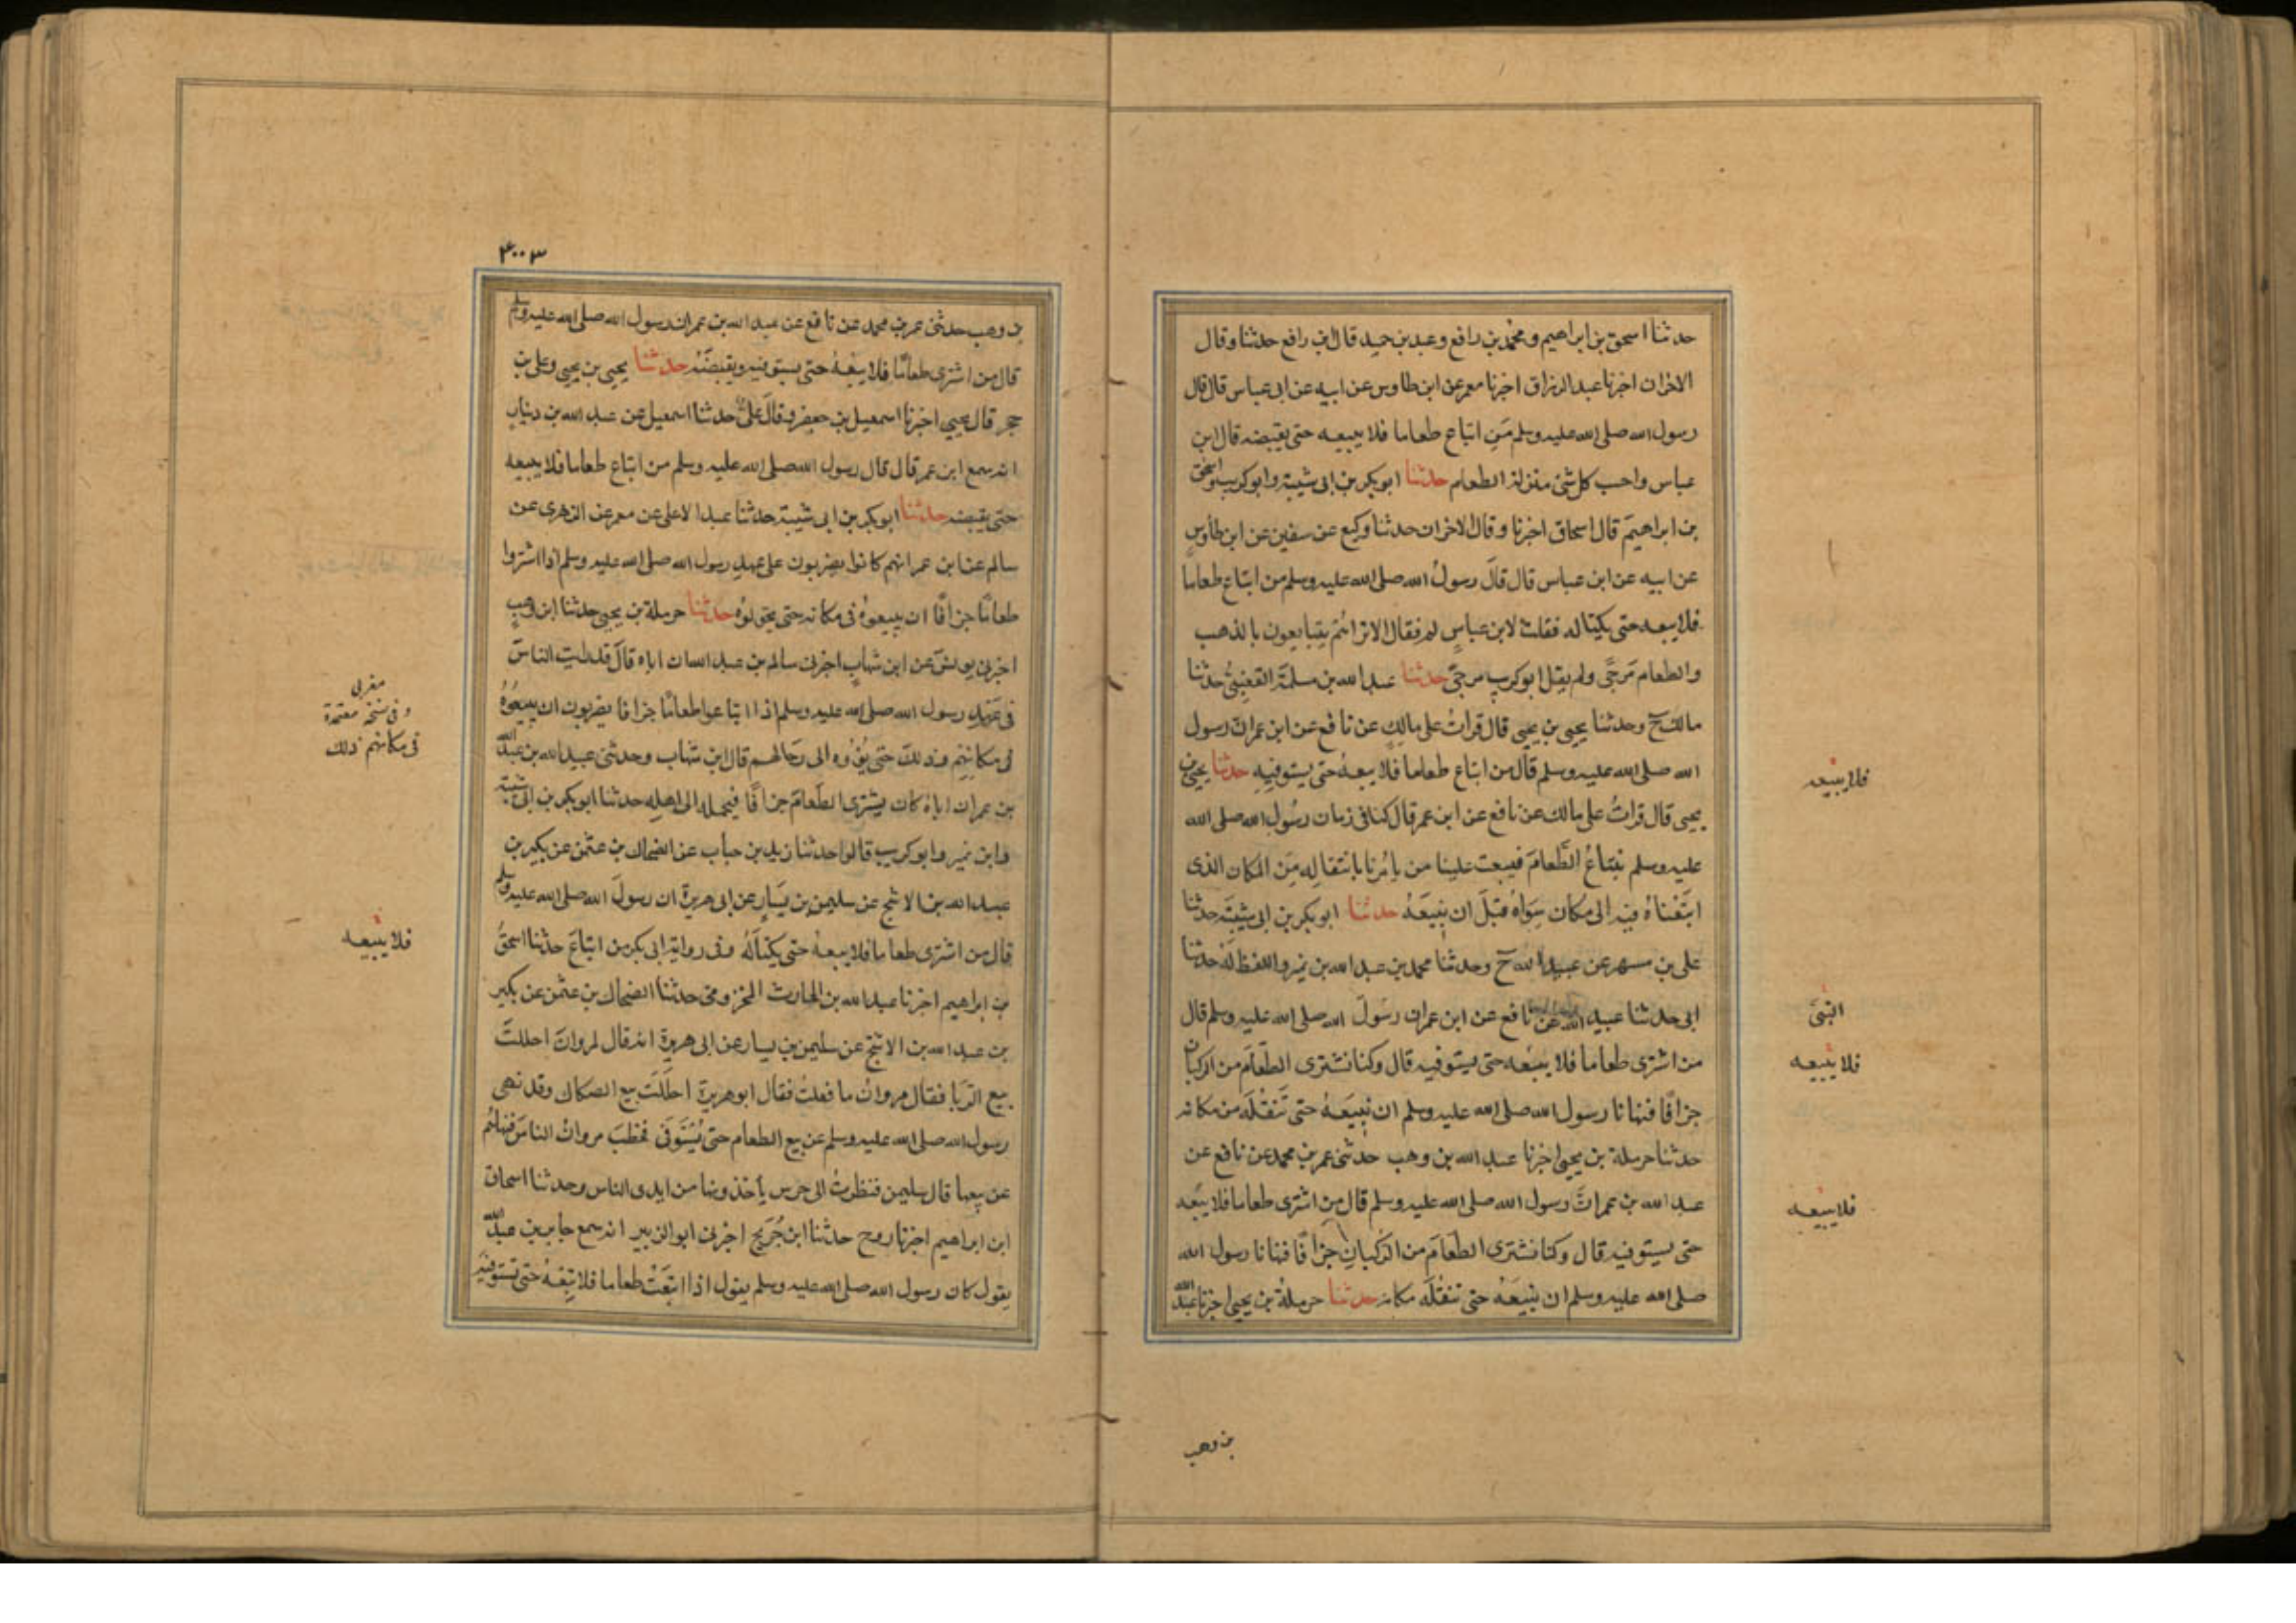 حدثنا اسحق بن ابراهيم ومحمد بن رافع وعبد بن حميد قال ابن رافع حدثنا وقال
الاخران اخبرنا عبد الرزاق اخبرنا معمر عن ابن طاوس عن ابيه عن ابن عباس قال قال
رسول الله صلى الله عليه وسلم من ابتاع طعاما فلا يبيعه حتى يقبضه قال ابن
عباس واحسب كل شئ بمنزلة الطعام حدثنا ابو بكر بن ابى شيبة وابو كريب واسحق
بن ابراهيم قال اسحاق اخبرنا وقال الاخران حدثنا وكيع عن سفين عن ابن طاوس
عن ابيه عن ابن عباس قال قال رسول الله صلى الله عليه وسلم من ابتاع طعاما
فلا يبعه حتى يكتاله فقلت لابن عباس لم فقال الا تراهم يتبايعون بالذهب
والطعام مرجى ولم يقل ابو كريب مرجى حدثنا عبد الله بن مسلمة القعنبى حدثنا
مالك ح وحدثنا يحيى بن يحيى قال قرات على مالك عن نافع عن ابن عمر ان رسول
الله صلى الله عليه وسلم قال من ابتاع طعاما فلا يبعه حتى يستوفيه حدثنا يحيى بن
يحيى قال قرات على مالك عن نافع عن ابن عمر قال كنا فى زمان رسول الله صلى الله
عليه وسلم نبتاع الطعام فيبعث علينا من يامرنا بانتقاله من المكان الذى
ابتعناه فيه الى مكان سواه قبل ان نبيعه حدثنا ابو بكر بن ابى شيبة حدثنا
على بن مسهر عن عبيد الله ح وحدثنا محمد بن عبد الله بن نمير واللفظ له حدثنا
ابى حدثنا عبيد الله عن نافع عن ابن عمر ان رسول الله صلى الله عليه وسلم قال
من اشترى طعاما فلا يبعه حتى يستوفيه قال وكنا نشترى الطعام من الركبان
جزافا فنهانا رسول الله صلى الله عليه وسلم ان نبيعه حتى ننقله من مكانه
حدثنا حرملة بن يحيى اخبرنا عبد الله بن وهب حدثنى عمر بن محمد عن نافع عن
عبد الله بن عمر ان رسول الله صلى الله عليه وسلم قال من اشترى طعاما فلا يبعه
حتى يستوفيه قال وكنا نشترى الطعام من الركبان جزافا فنهانا رسول الله
صلى الله عليه وسلم ان نبيعه حتى ننقله مكانه حدثنا حرملة بن يحيى اخبرنا عبد الله
فلا يبيعه
النبى
فلا يبيعه
فلا يبيعه
بن وهب
٣٠٠٣
بن وهب حدثنى عمر بن محمد عن نافع عن عبد الله بن عمر ان رسول الله صلى الله عليه وسلم
قال من اشترى طعاما فلا يبعه حتى يستوفيه ويقبضه حدثنا يحيى بن يحيى وعلى بن
حجر قال يحيى اخبرنا اسمعيل بن جعفر وقال على حدثنا اسمعيل عن عبد الله بن دينار
انه سمع ابن عمر قال قال رسول الله صلى الله عليه وسلم من ابتاع طعاما فلا يبيعه
حتى يقبضه حدثنا ابو بكر بن ابى شيبة حدثنا عبد الاعلى عن معمر عن الزهرى عن
سالم عن ابن عمر انهم كانوا يضربون على عهد رسول الله صلى الله عليه وسلم اذا اشتروا
طعاما جزافا ان يبيعوه فى مكانه حتى يحولوه حدثنا حرملة بن يحيى حدثنا ابن وهب
اخبرنى يونس عن ابن شهاب اخبرنى سالم بن عبد الله ان اباه قال قد رايت الناس
فى عهد رسول الله صلى الله عليه وسلم اذا ابتاعوا طعاما جزافا يضربون ان يبيعوه
فى مكانهم وذلك حتى يؤوه الى رحالهم قال ابن شهاب وحدثنى عبيد الله بن عبد الله
بن عمر ان اباه كان يشترى الطعام جزافا فيحمله الى اهله حدثنا ابو بكر بن ابى شيبة
وابن نمير وابو كريب قالوا حدثنا زيد بن حباب عن الضحاك بن عثمن عن بكير بن
عبد الله بن الاشج عن سليمن بن يسار عن ابى هريرة ان رسول الله صلى الله عليه وسلم
قال من اشترى طعاما فلا يبعه حتى يكتاله وفى رواية ابى بكر من ابتاع حدثنا اسحق
بن ابراهيم اخبرنا عبد الله بن الحارث المخزومى حدثنا الضحاك بن عثمن عن بكير
بن عبد الله بن الاشج عن سليمن بن يسار عن ابى هريرة انه قال لمروان احللت
بيع الربا فقال مروان ما فعلت فقال ابو هريرة احللت بيع الصكاك وقد نهى
رسول الله صلى الله عليه وسلم عن بيع الطعام حتى يستوفى فخطب مروان الناس فنهاهم
عن بيعها قال سليمن فنظرت الى حرس يأخذونها من ايدى الناس وحدثنا اسحاق
ابن ابراهيم اخبرنا روح حدثنا ابن جريج اخبرنى ابو الزبير انه سمع جابر بن عبد الله
يقول كان رسول الله صلى الله عليه وسلم يقول اذا ابتعت طعاما فلا تبعه حتى تستوفيه
مغربى
وفى نسخة معتمدة
فى مكانهم ذلك
فلا يبيعه